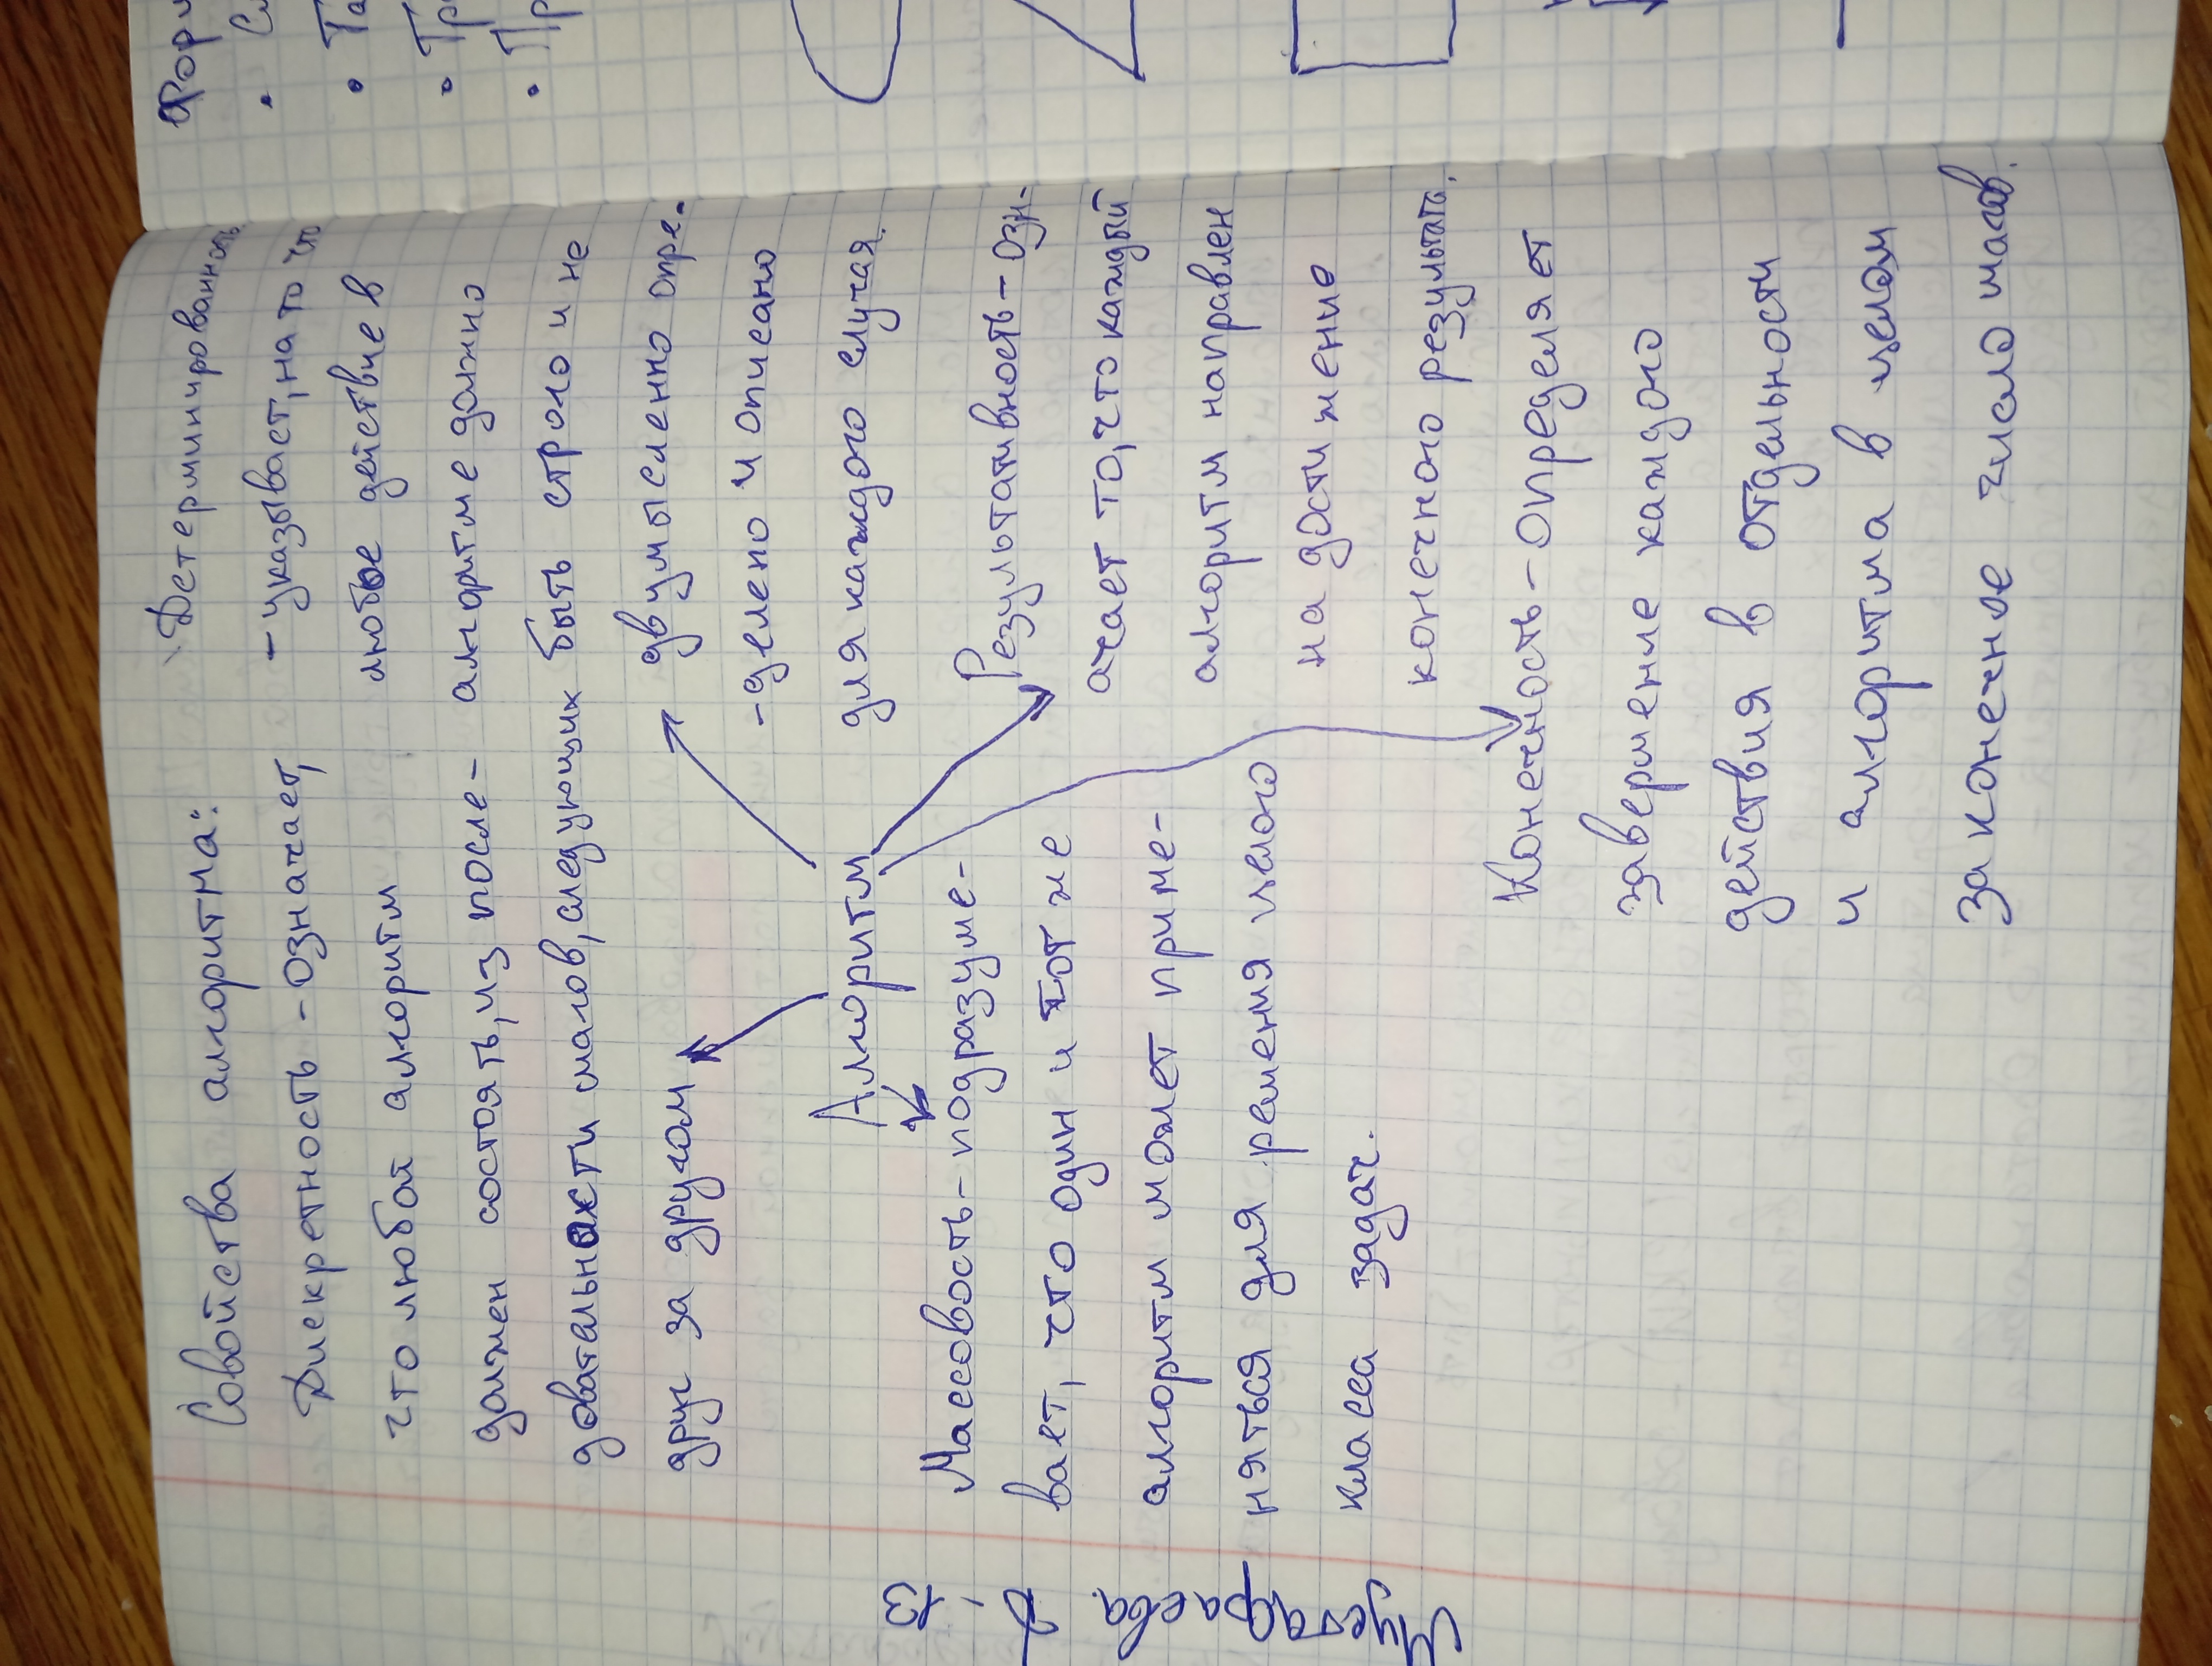 Совойства алгоритма:
Дискретность - означает,
что любой алгоритм
должен состоять, из после-
довательности шагов, следующих
друг за другом
Детерминированность
- указывает, на то что
любое действие в
алгоритме должно
быть строго и не
двумысленно опре-
-делено и описано
для каждого случая.
Алгоритм
Массовость - подразуме-
вает, что один и тот же
алгоритм может приме-
няться для решения целого
класса задач.
Результативность - озн-
ачает то, что каждый
алгоритм направлен
на достижение
конечного результата.
Конечность - определяет
завершение каждого
действия в отдельности
и алгоритма в целом
за конечное число шагов.
Фор
• Сл
• Та
• Гр
• Пр